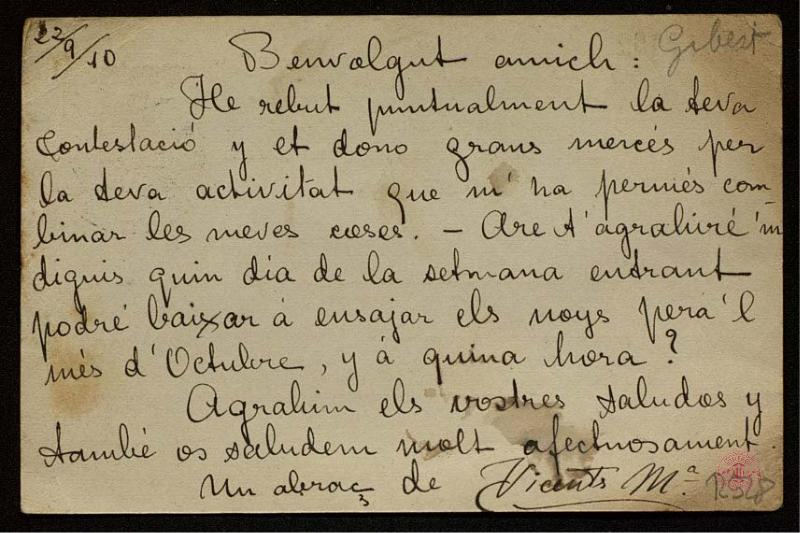 22/9/10
Benvolgut amich: Gibert
He rebut puntualment la teva
contestació y et dono grans mercés per
la teva activitat que m'ha permés com-
binar les meves coses. – Are t'agrahiré 'm
diguis quin dia de la setmana entrant
podré baixar á ensajar els noys pera'l
més d'Octubre, y á quina hora?
Agrahim els vostres saludos y
també os saludem molt afectuosament.
Un abraç de Vicents Mª